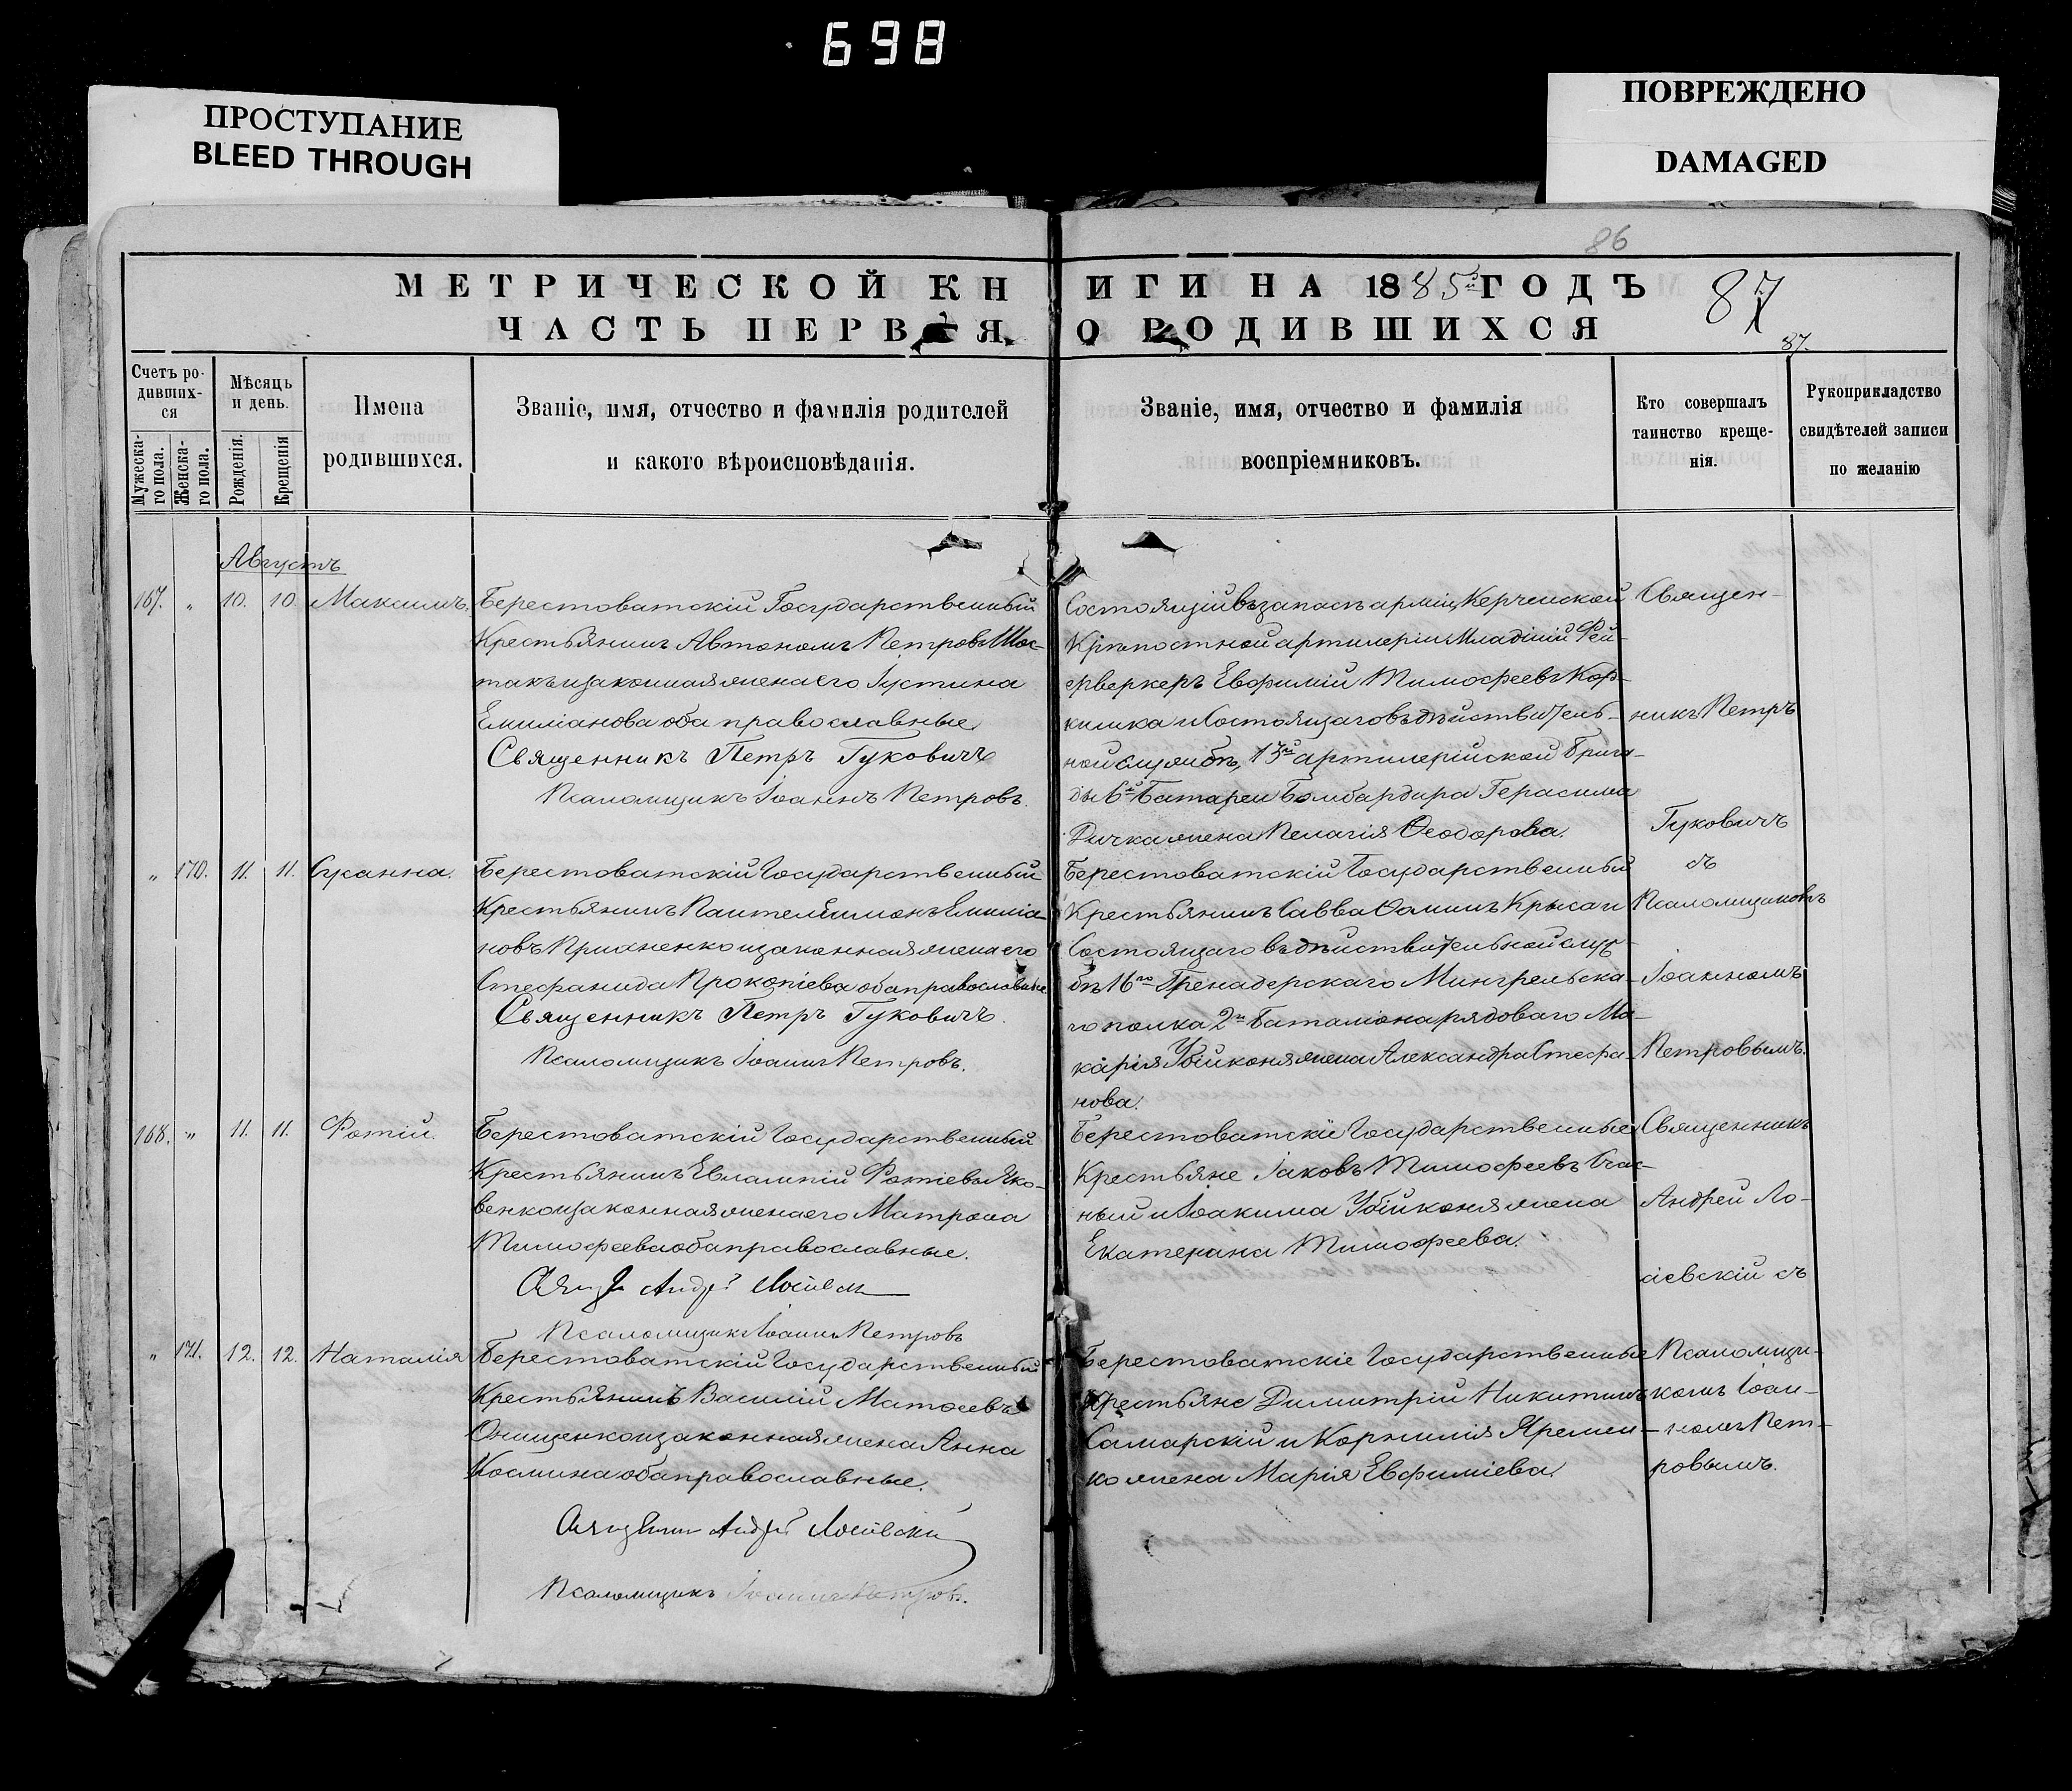 698
ПРОСТУПАНИЕ
BLEED THROUGH
ПОВРЕЖДЕНО
DAMAGED
86
МЕТРИЧЕСКОЙ КНИГИ НА 1885й ГОДЪ
87
ЧАСТЬ ПЕРВАЯ, О РОДИВШИХСЯ
87.
Счетъ ро-
дивших-
ся
Мужеска-
го пола.
Женска-
го пола.
Мѣсяцъ
и день.
Рожденія.
Крещенія
Имена
родившихся.
Званіе, имя, отчество и фамилія родителей
и какого вѣроисповѣданія.
Званіе, имя, отчество и фамилія
воспріемниковъ.
Кто совершалъ
таинство креще-
нія.
Рукоприкладство
свидѣтелей записи
по желанію
Августъ
167. " 10. 10. Максимъ.
Берестоватскій Государственный
Крестьянинъ Автономъ Петровъ Шос-
такъ и законная жена его Іустина
Емиліанова оба православные
Священникъ Петръ Гуковичъ
Псаломщикъ Іоаннъ Петровъ.
Состоящій въ запасѣ арміи Керченской
Крѣпостной артилеріи Младшій Фей-
ерверкеръ Евфимій Тимофеевъ Кор-
кишка и Состоящаго въ дѣйствитель-
ной службѣ, 13й артилерійской Брига-
ды 6й Батареи Бомбардира Герасима
Дичка жена Пелагія Ѳеодорова.
Священ-
никъ Петръ
Гуковичъ
съ
Псаломщикомъ
Іоанномъ
Петровымъ.
" 170. 11. 11. Сусанна.
Берестоватскій Государственный
Крестьянинъ Пантелеимонъ Емиліа-
новъ Прианенко и законная жена его
Стефанида Прокопіева оба православные
Священникъ Петръ Гуковичъ.
Псаломщикъ Іоаннъ Петровъ.
Берестоватскій Государственный
Крестьянинъ Савва Ѳоминъ Крыса и
Состоящаго въ дѣйствительной служ-
бѣ 16го Гренадерскаго Мингрельска-
го полка 2й Баталіона рядоваго Ма-
карія Убійконя жена Александра Стефа-
нова.
168. " 11. 11. Фотій.
Берестоватскій Государственный
Крестьянинъ Евлампій Фотіевъ Яко-
венко и законная жена его Матрона
Тимофеева оба православные.
Псаломщикъ Іоаннъ Петровъ
Берестоватскіе Государственные
Крестьяне Іаковъ Тимофеевъ
ный и Іоакима Убійконя жена
Екатерина Тимофеева.
Священникъ
Андрей Ло-
сіевскій съ
Псаломщи-
комъ Іоан-
номъ Пет-
ровымъ.
" 171. 12. 12. Наталія
Берестоватскій Государственный
Крестьянинъ Василій Матѳеевъ
Онищенко и законная жена Анна
Космина оба православные.
Священникъ Андрей Лосіевскій
Псаломщикъ Іоаннъ Петровъ.
Берестоватскіе Государственные
Крестьяне Димитрій Никитинъ
Самарскій и Корнилія Яремен-
ко жена Марія Евфиміева.